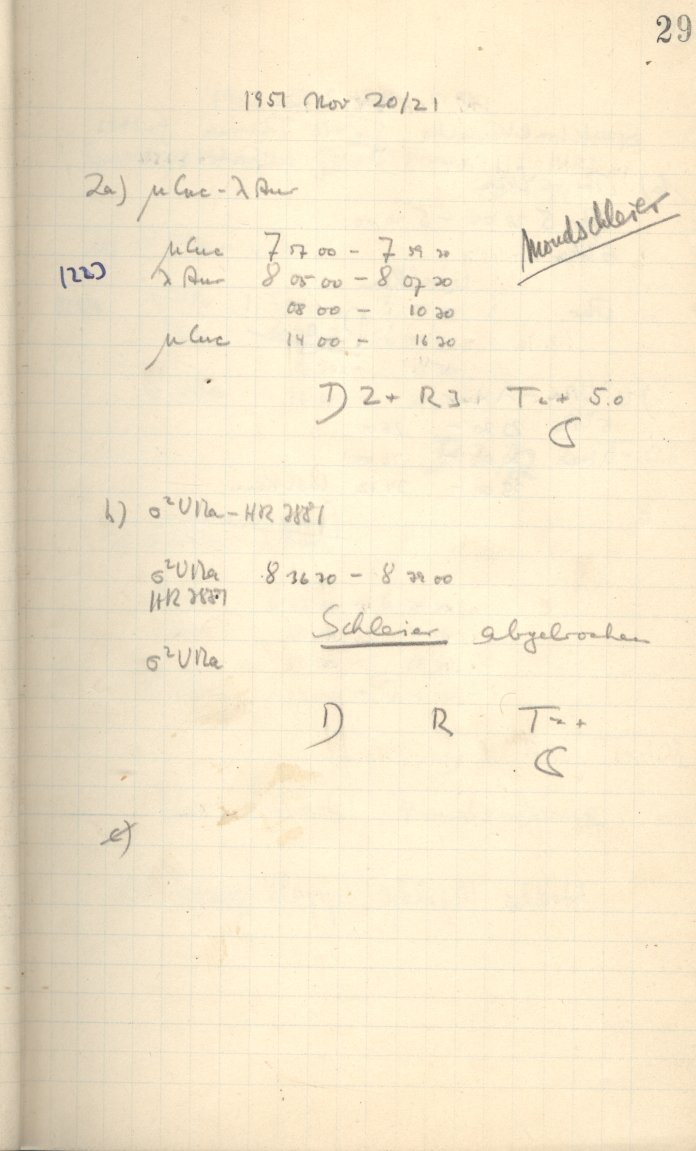 29
1951 Nov 20/21
2a) μ Cnc - λ Aur
Mondschleier
μ Cnc 7 57 00 - 7 59 20
122) λ Aur 8 05 00 - 8 07 20
08 00 - 10 20
μ Cnc 14 00 - 16 20
D 2+ R 3 T + 5.0
b) σ² UMa - HR
σ² UMa 8 36 20 - 8 39 00
HR
Schleier abgebrochen
σ² UMa
D R T
c)